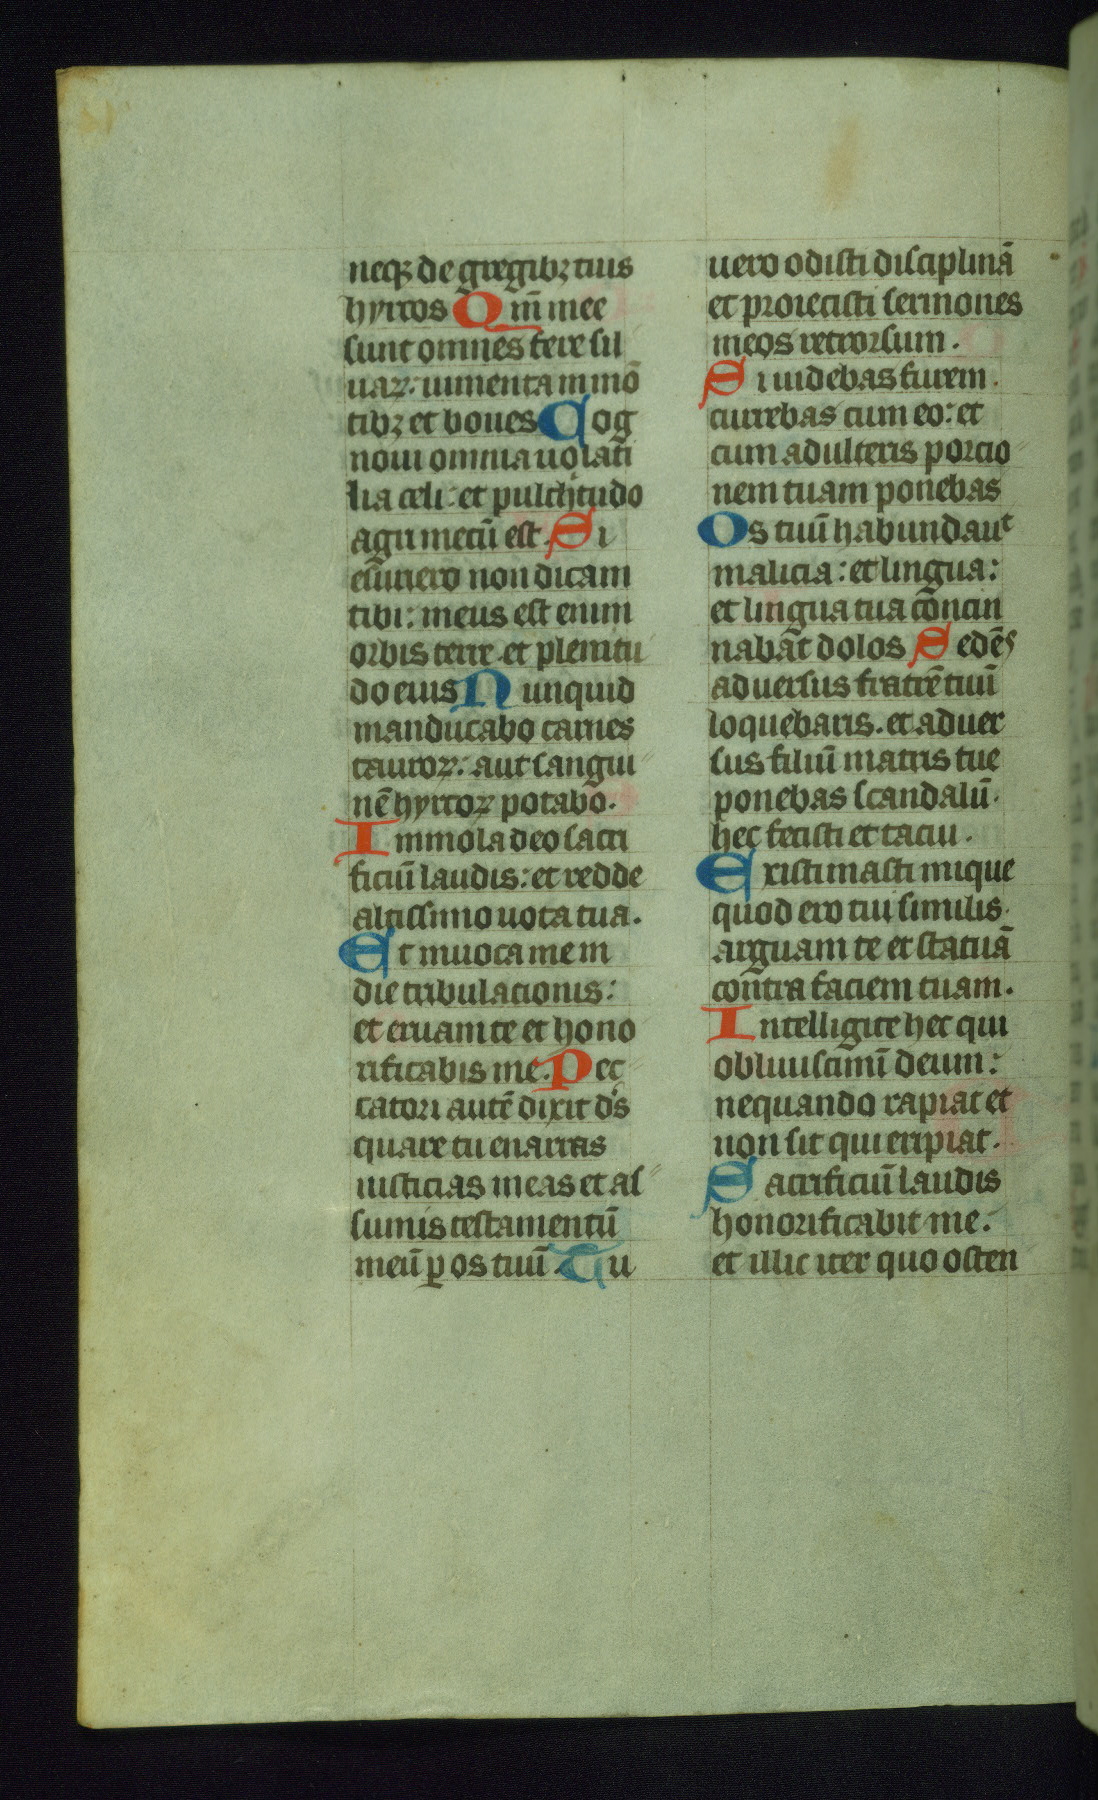 neqꝫ de gregibꝫ tuis
hyrcos Qm̄ mee
sunt omnes fere sil
uaꝝ: iumenta in mō
tibꝫ et boues Cog
noui omnia uolati
lia celi: et pulchtudo
agri mecū est. Si
esuriero non dicam
tibi: meus est enim
orbis terre et plenitu
do eius Nunquid
manducabo carnes
tauroꝝ: aut sangui
nē hyrcoꝝ potabo.
Immola deo sacri
ficiū laudis: et redde
altissimo uota tua.
Et inuoca me in
die tribulacionis:
et eruam te et hono
rificabis me. Pec
catori autē dixit ds̄
quare tu enarras
iusticias meas et as
sumis testamentū
meū ꝑ os tuū. Tu
uero odisti disciplinā
et proiecisti sermones
meos retrorsum.
Si uidebas furem.
currebas cum eo: et
cum adulteris porcio
nem tuam ponebas
Os tuū habundauᵗ
malicia: et lingua:
et lingua tua concin
nabāt dolos Sedēs
aduersus fratrē tuū
loquebaris. et aduer
sus filiū matris tue
ponebas scandalū.
hec fecisti et tacui.
Existimasti inique
quod ero tui similis.
arguam te et statuā
contra faciem tuam.
Intelligite hec qui
obliuiscimī deum:
nequando rapiat et
non sit qui eripiat.
Sacrificiū laudis
honorificabit me.
et illic iter quo osten